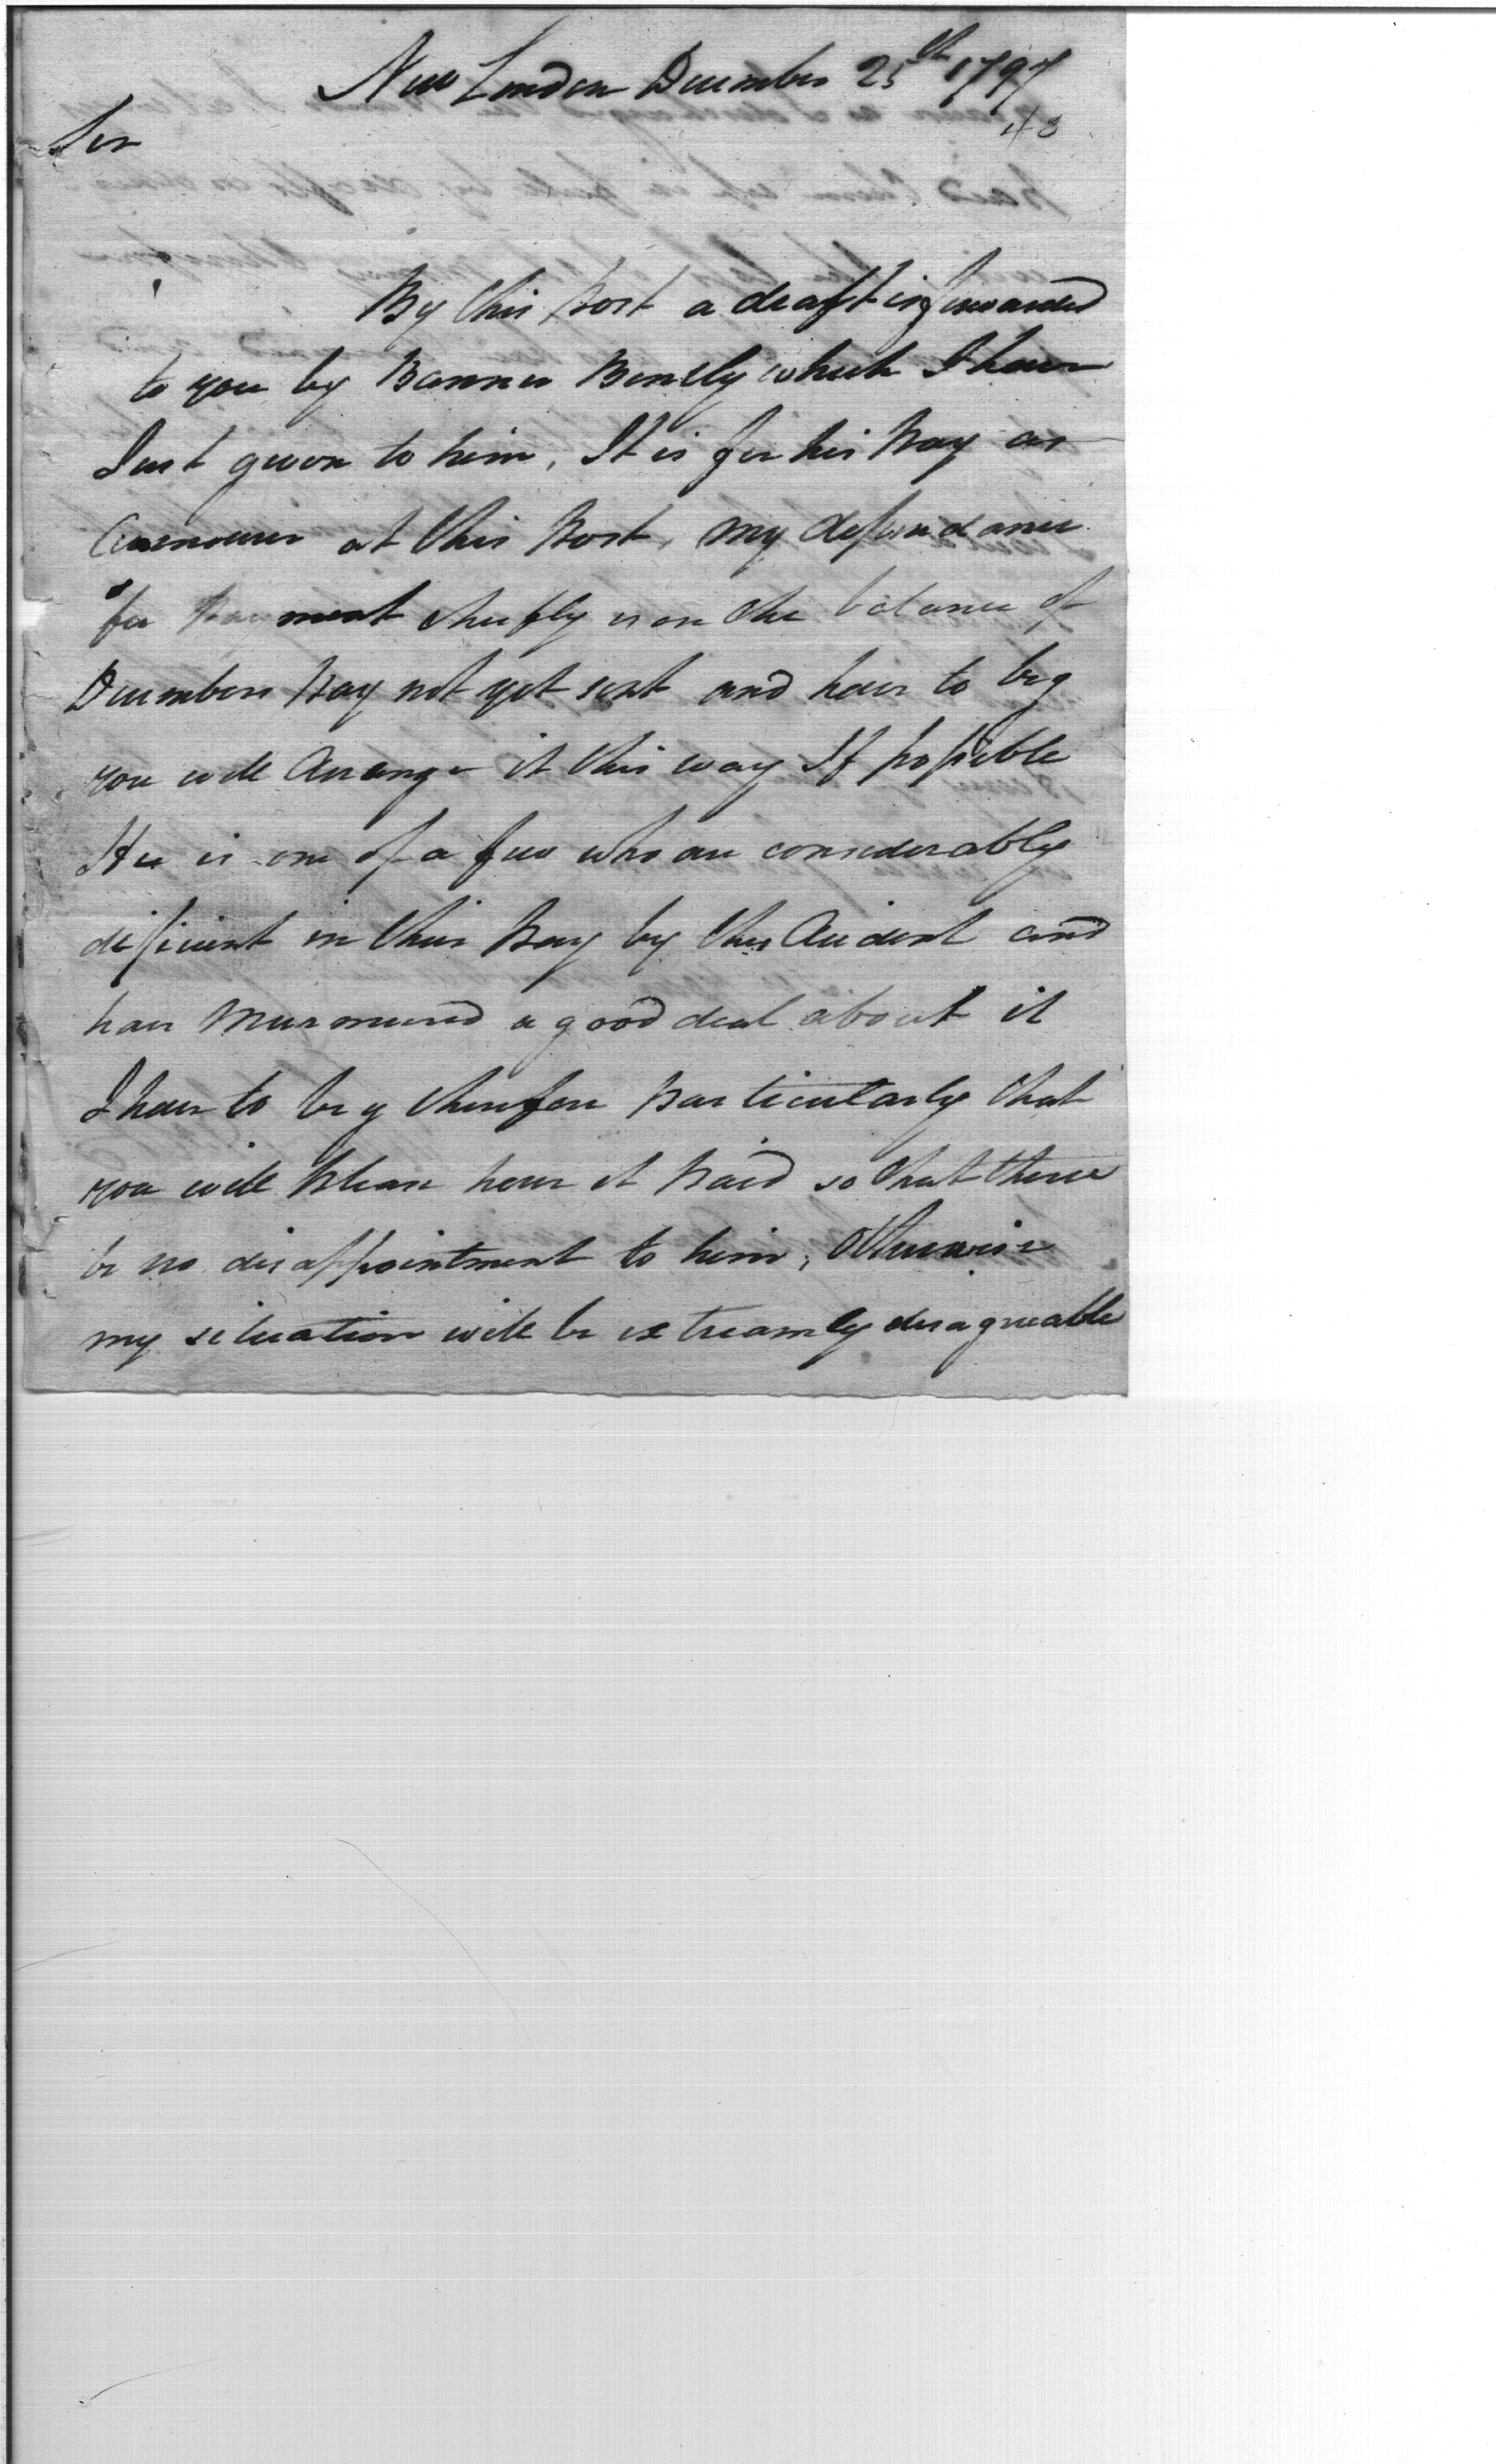 New London December 25th 1797
43
Sir
By this Post a draft is forwarded
to you by which I have
Just given to him, It is for his Pay as
Armourer at this Post, my dependance
for Payment chiefly is on the balance of
Decembers Pay not yet sent and have to beg
you will Arrange it this way If possible
He is one of a few who are considerably
dificient in their Pay by this Accident and
have Murmured a good deal about it
I have to beg therefore Particularly that
you will Please have it Paid so that there
be no disappointment to him, Otherwise
my situation will be extreamly disagreeable